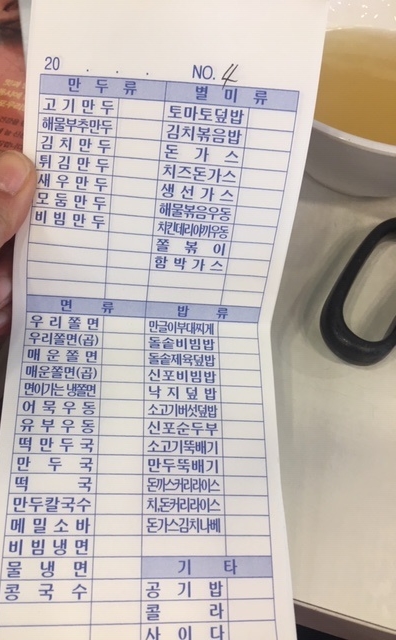 20 . . . NO. 4
만두류 별미류
고기만두 토마토덮밥
해물부추만두 김치볶음밥
김치만두 돈가스
튀김만두 치즈돈가스
새우만두 생선가스
모둠만두 해물볶음우동
비빔만두 치킨데리야끼우동
쫄볶이
함박가스
면류 밥류
우리쫄면 만글이부대찌게
우리쫄면(곱) 돌솥비빔밥
매운쫄면 돌솥제육덮밥
매운쫄면(곱) 신포비빔밥
면이가는냉쫄면 낙지덮밥
어묵우동 소고기버섯덮밥
유부우동 신포순두부
떡만두국 소고기뚝배기
만두국 만두뚝배기
떡국 돈까스커리라이스
만두칼국수 치,돈커리라이스
메밀소바 돈가스김치나베
비빔냉면
물냉면 기타
콩국수 공기밥
콜라
사이다